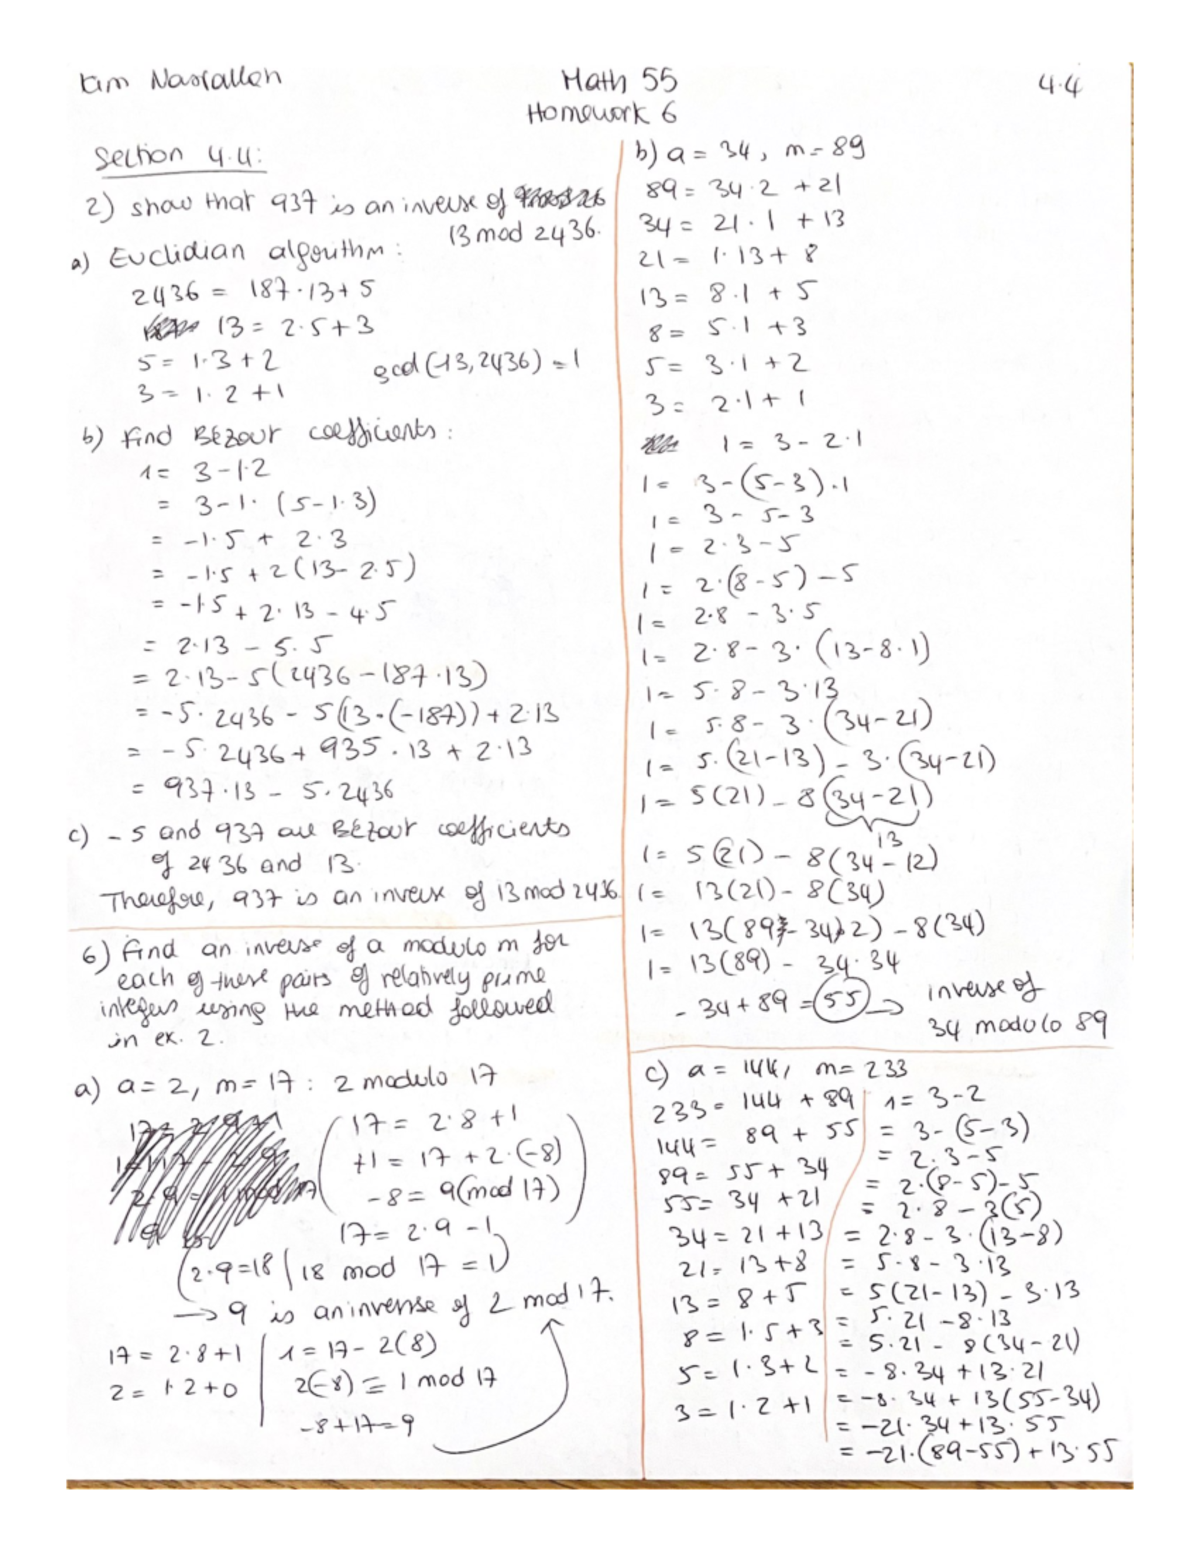 Kim Nasrallah
Math 55
4.4
Homework 6
Section 4.4:
2) show that 937 is an inverse of
13 mod 2436.
a) Euclidian algorithm:
2436 = 187·13+5
13 = 2·5+3
5 = 1·3+2
gcd(-13,2436) = 1
3 = 1·2+1
b) find BÉZOUT coefficients:
1 = 3-1·2
= 3-1·(5-1·3)
= -1·5 + 2·3
= -1·5 + 2(13-2·5)
= -1·5 + 2·13 - 4·5
= 2·13 - 5·5
= 2·13-5(2436-187·13)
= -5·2436 - 5(13·(-187)) + 2·13
= -5·2436 + 935·13 + 2·13
= 937·13 - 5·2436
c) -5 and 937 are BÉZOUT coefficients
of 2436 and 13.
Therefore, 937 is an inverse of 13 mod 2436.
6) Find an inverse of a modulo m for
each of these pairs of relatively prime
integers using the method followed
in ex. 2.
a) a=2, m=17: 2 modulo 17
17 = 2·8+1
+1 = 17+2·(-8)
-8 = 9(mod 17)
17 = 2·9-1
2·9=18 | 18 mod 17 = 1
→ 9 is an inverse of 2 mod 17.
17 = 2·8+1 | 1 = 17-2(8)
2 = 1·2+0 | 2(-8) ≡ 1 mod 17
-8+17=9
b) a = 34, m=89
89 = 34·2 + 21
34 = 21·1 + 13
21 = 1·13 + 8
13 = 8·1 + 5
8 = 5·1 + 3
5 = 3·1 + 2
3 = 2·1 + 1
1 = 3-2·1
1 = 3-(5-3)·1
1 = 3-5-3
1 = 2·3-5
1 = 2·(8-5)-5
1 = 2·8 - 3·5
1 = 2·8-3·(13-8·1)
1 = 5·8-3·13
1 = 5·8-3·(34-21)
1 = 5·(21-13)-3·(34-21)
1 = 5(21)-8(34-21)
13
1 = 5(21)-8(34-12)
1 = 13(21)-8(34)
1 = 13(89-34)2)-8(34)
1 = 13(89)-34·34
-34+89 = 55 → inverse of
34 modulo 89
c) a = 144, m=233
233 = 144 + 89 | 1 = 3-2
144 = 89 + 55 | = 3-(5-3)
89 = 55 + 34 | = 2·3-5
55 = 34 + 21 | = 2·(8-5)-5
= 2·8-3(5)
34 = 21+13 | = 2·8-3·(13-8)
21 = 13+8 | = 5·8-3·13
13 = 8+5 | = 5(21-13)-3·13
= 5·21-8·13
8 = 1·5+3 | = 5·21-8(34-21)
5 = 1·3+2 | = -8·34+13·21
3 = 1·2+1 | = -8·34+13(55-34)
= -21·34+13·55
= -21·(89-55)+13·55